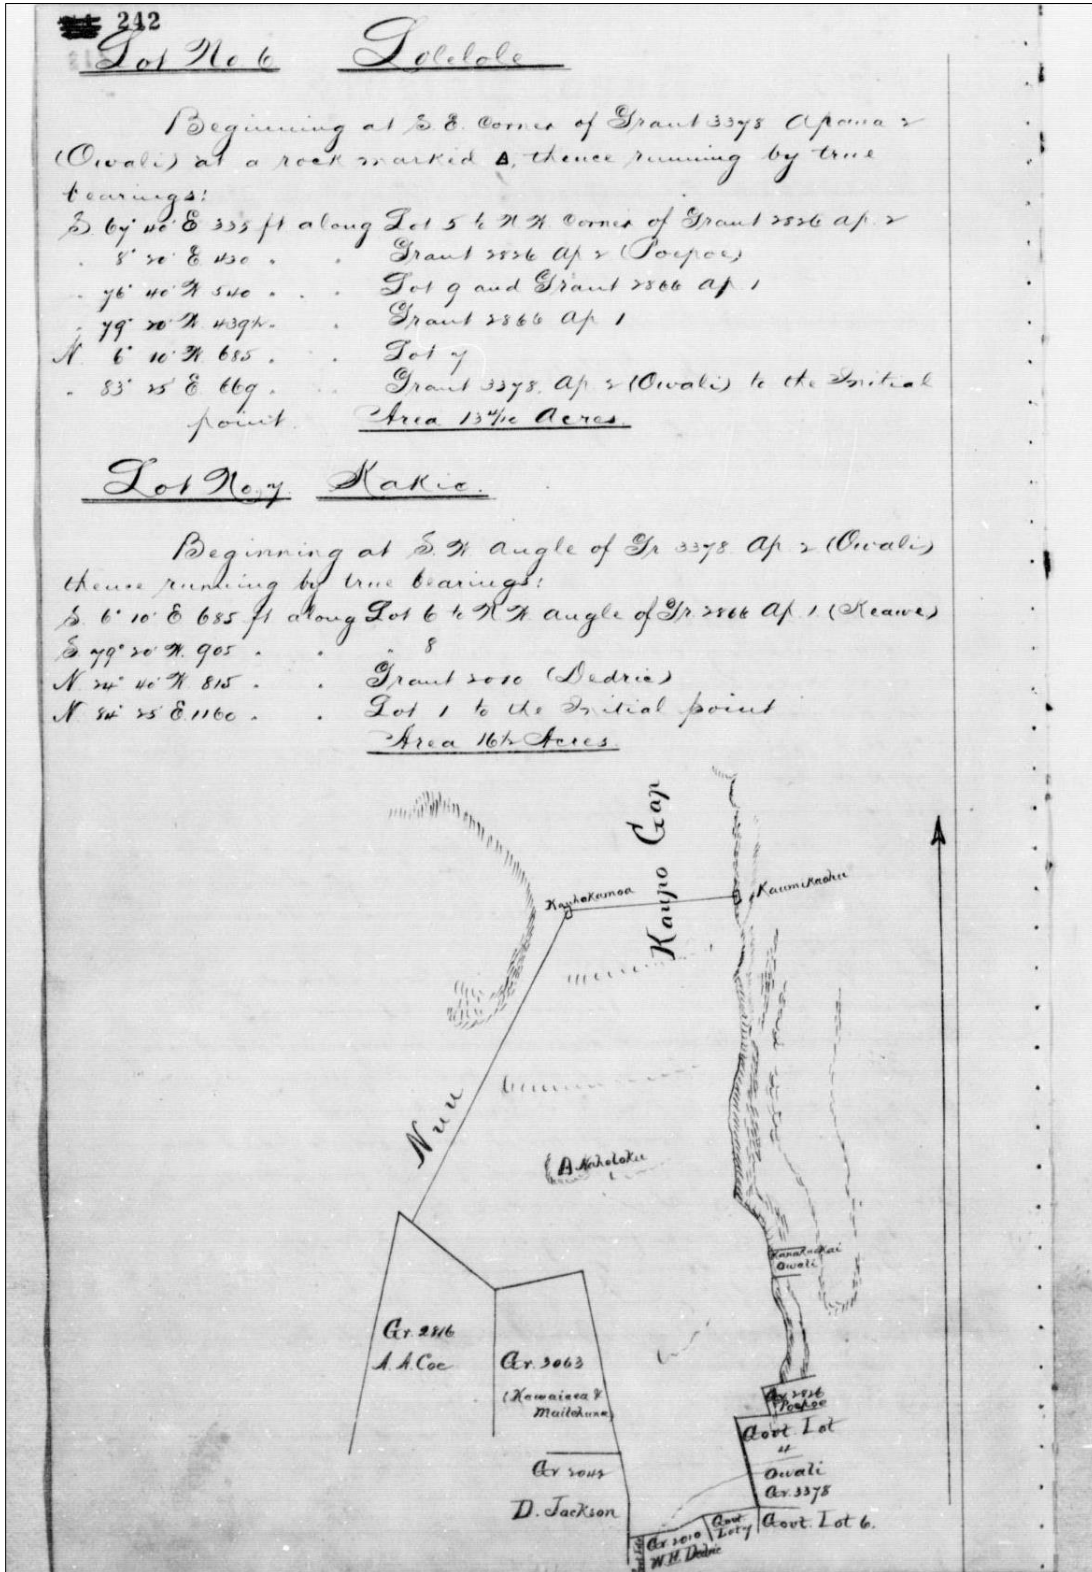 242
Lot No 6 Lolelole
Beginning at S. E. Corner of Grant 3378 Apana 2
(Owali) at a rock marked Δ, thence running by true
bearings:
S 67° 40' E 335 ft along Lot 5 to N W. Corner of Grant 2826 Ap. 2
. 8° 20' E. 430 . . Grant 2826 Ap 2 (Poepoe)
. 76° 40' W 540 . . . Lot 9 and Grant 2866 Ap 1
. 79° 20' W. 439½ . . Grant 2866 Ap 1
N 6° 10' W. 685 . . Lot 7
. 83° 25' E. 669 . . . Grant 3378. Ap. 2 (Owali) to the Initial
point. Area 13 4/10 Acres.
Lot No. 7 Kakio.
Beginning at S. W Angle of Gr 3378 Ap. 2 (Owali)
thence running by true bearings:
S. 6° 10' E 685 ft along Lot 6 to N W. Angle of Gr. 2866 Ap. 1. (Keawe)
S. 79° 20' W. 905 . . . 8
N. 24° 40' W. 815 . . Grant 2010 (Dedric)
N. 84° 25' E. 1160 . . Lot 1 to the Initial point
Area 16½ Acres.
Kaupo Gap
Kauhakamoa
Kaumikaohu
Nuu
Δ Naholoku
Owali
Gr. 2816
A. A. Coe
Gr. 3063
(Kawaiaea &
Gr 2826
Poepoe
Govt. Lot
4
Owali
Gr. 3378
Gr 2042
D. Jackson
Gr 2010
W. H. Dedric
Govt
Lot 7
Govt. Lot 6.